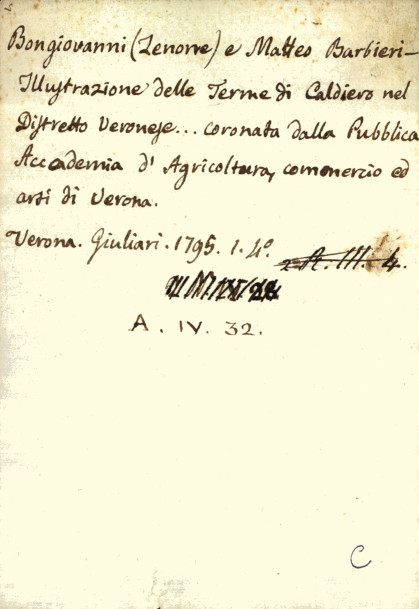 Bongiovanni (Zenone) e Matteo Barbieri-
Illustrazione delle Terme di Caldiero nel
Distretto Veronese... coronata dalla Pubblica
Accademia d' Agricoltura, commercio ed
arti di Verona.
Verona. Giuliari. 1795. 1. 4º.
A. III. 4.
A. IV. 32.
C